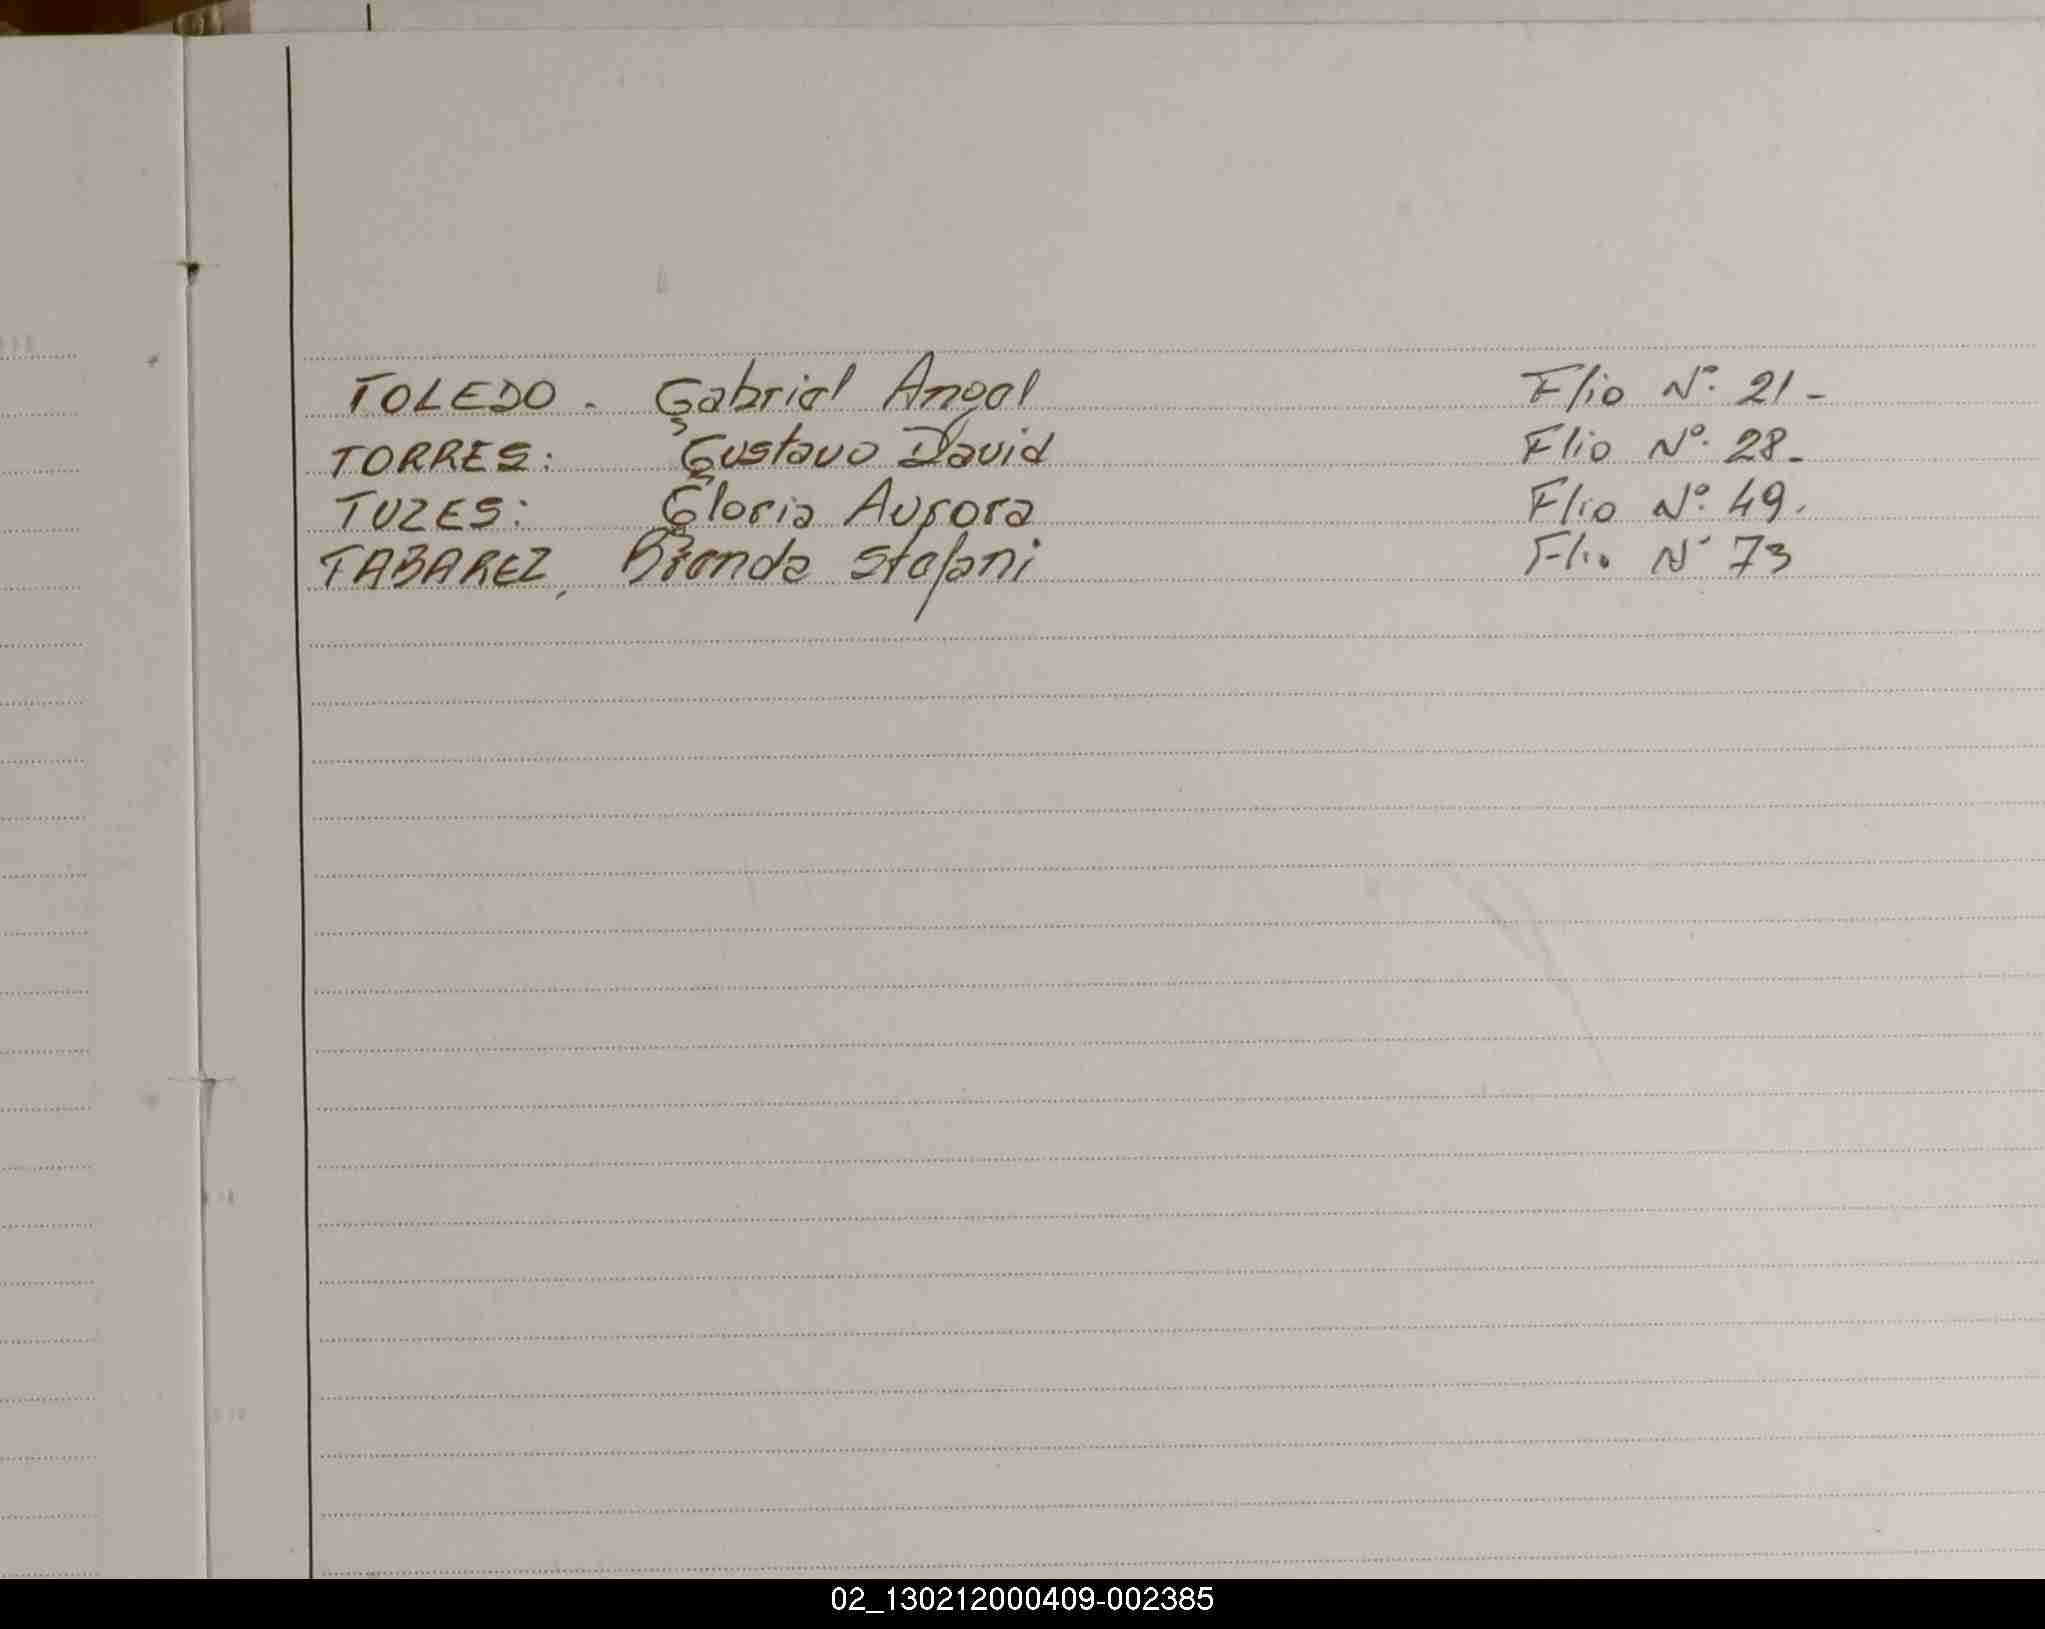 TOLEDO. Gabriel Angel Flio Nº. 21-
TORRES: Gustavo David Flio Nº. 28-
TUZES: Gloria Aurora Flio Nº. 49.
TABAREZ, Brenda Stefani Flio Nº 73
02_130212000409-002385